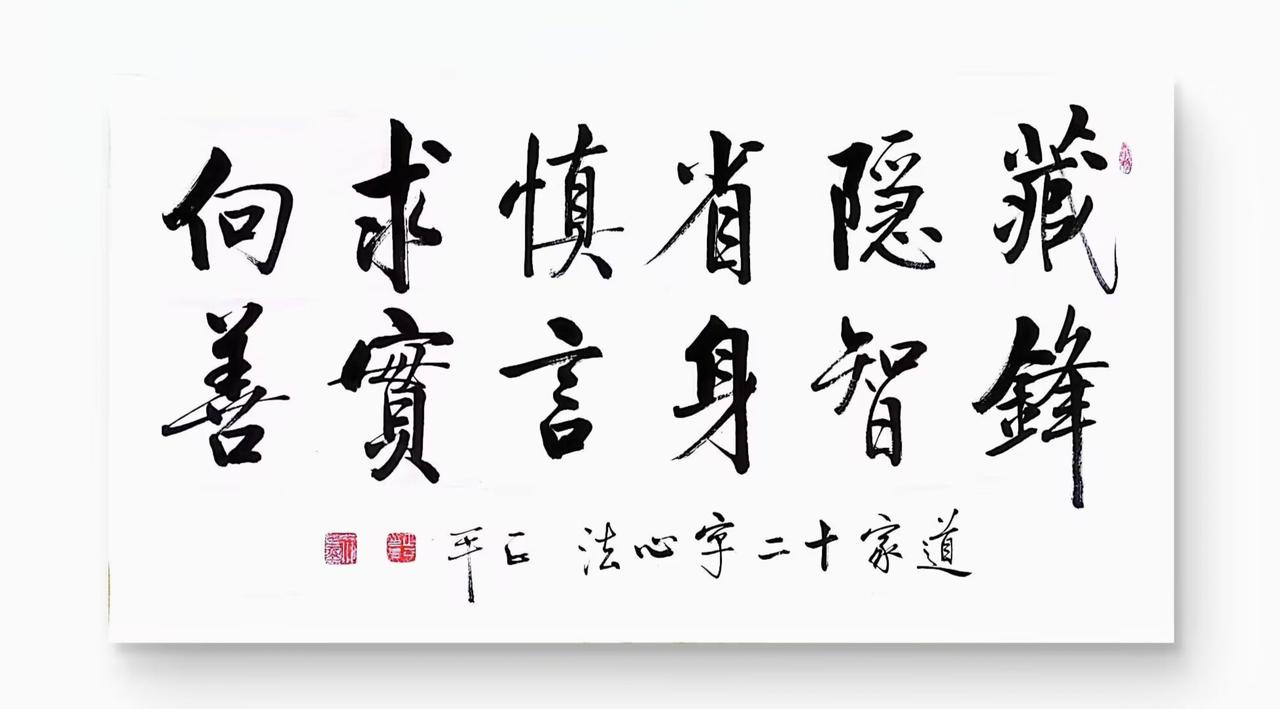 藏鋒
隐智
省身
慎言
求實
向善
道家十二字心法 正平